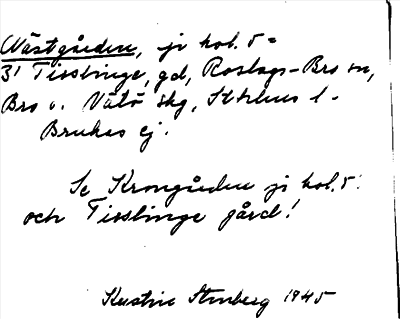 Västgården, ji kol. 5 =
3¹ Tisslinge, gd, Roslags-Bro sn,
Bro o. Vätö skg, Sthlms l.
Brukas ej.
Se Krongården ji kol. 5
och Tisslinge gård!
Kerstin Stenberg 1945